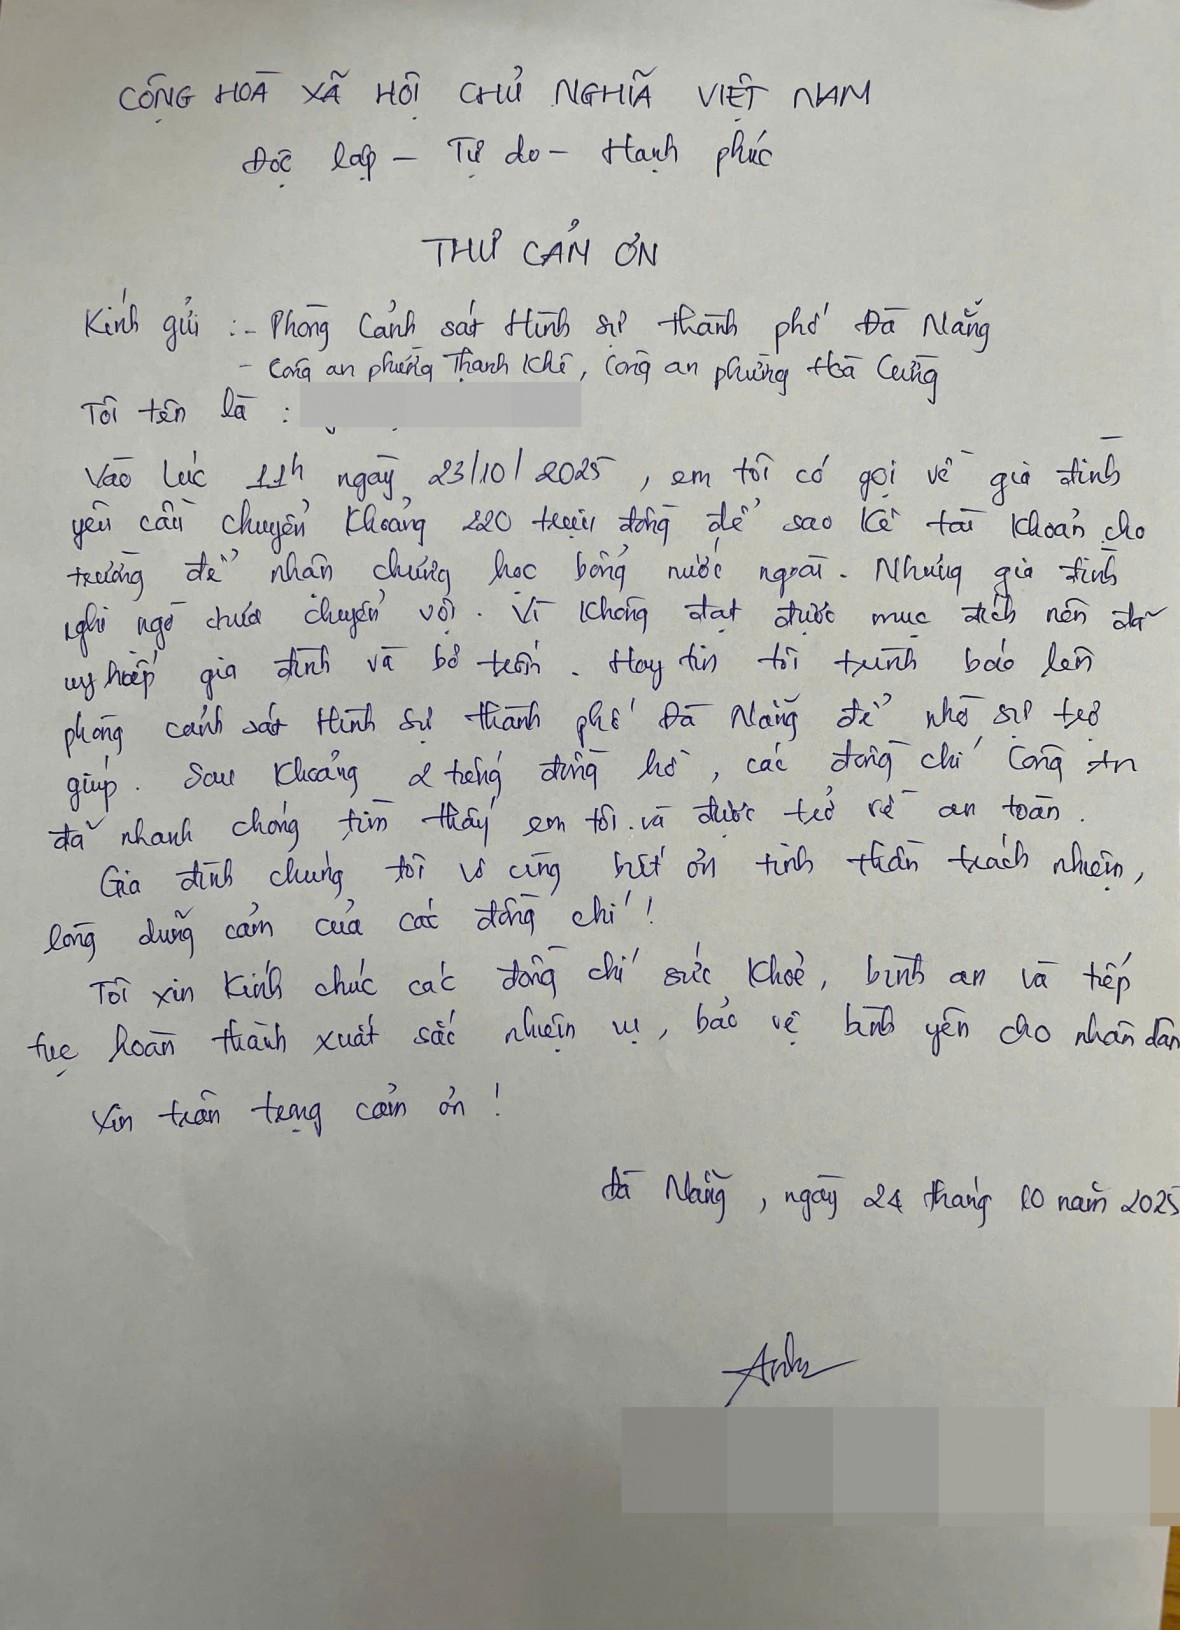 CỘNG HOÀ XÃ HỘI CHỦ NGHĨA VIỆT NAM
Độc lập - Tự do - Hạnh phúc
THƯ CẢM ƠN
Kính gửi : - Phòng Cảnh sát Hình sự thành phố Đà Nẵng
- Công an phường Thanh Khê, Công an phường Hoà Cường
Tôi tên là :
Vào lúc 11h ngày 23/10/2025, em tôi có gọi về gia đình
yêu cầu chuyển khoảng 220 triệu đồng để sao kê tài khoản cho
trường để nhận chứng học bổng nước ngoài. Nhưng gia đình
nghi ngờ chưa chuyển vội. Vì không đạt được mục đích nên đã
uy hiếp gia đình và bỏ trốn. Hay tin tôi trình báo lên
phòng cảnh sát Hình sự thành phố Đà Nẵng để nhờ sự trợ
giúp. Sau khoảng 2 tiếng đồng hồ, các đồng chí Công An
đã nhanh chóng tìm thấy em tôi và được trở về an toàn.
Gia đình chúng tôi vô cùng biết ơn tinh thần trách nhiệm,
lòng dũng cảm của các đồng chí !
Tôi xin kính chúc các đồng chí sức khoẻ, bình an và tiếp
tục hoàn thành xuất sắc nhiệm vụ, bảo vệ bình yên cho nhân dân
Xin trân trọng cảm ơn !
Đà Nẵng, ngày 24 tháng 10 năm 2025
Anh